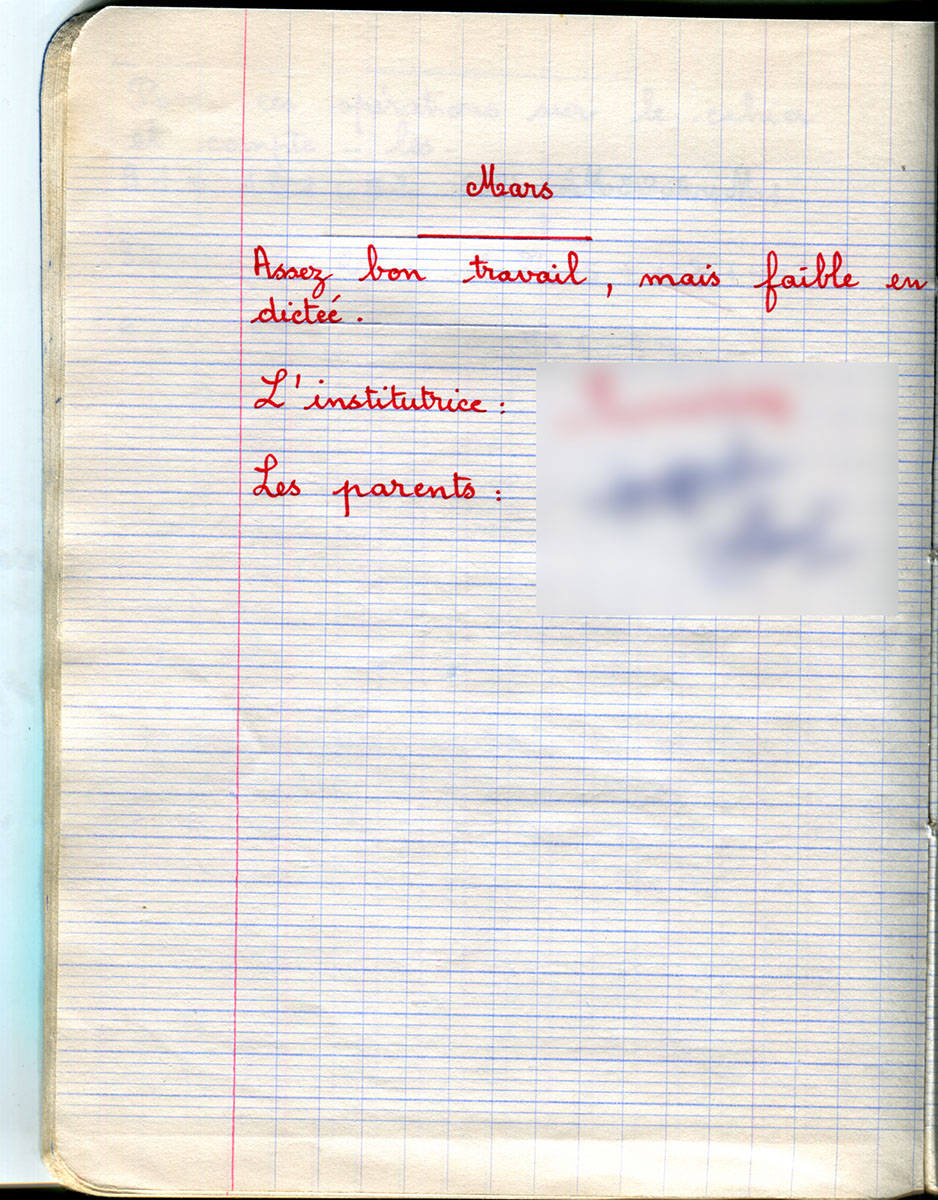 Mars
Assez bon travail, mais faible en
dictée.
L'institutrice :
Les parents :